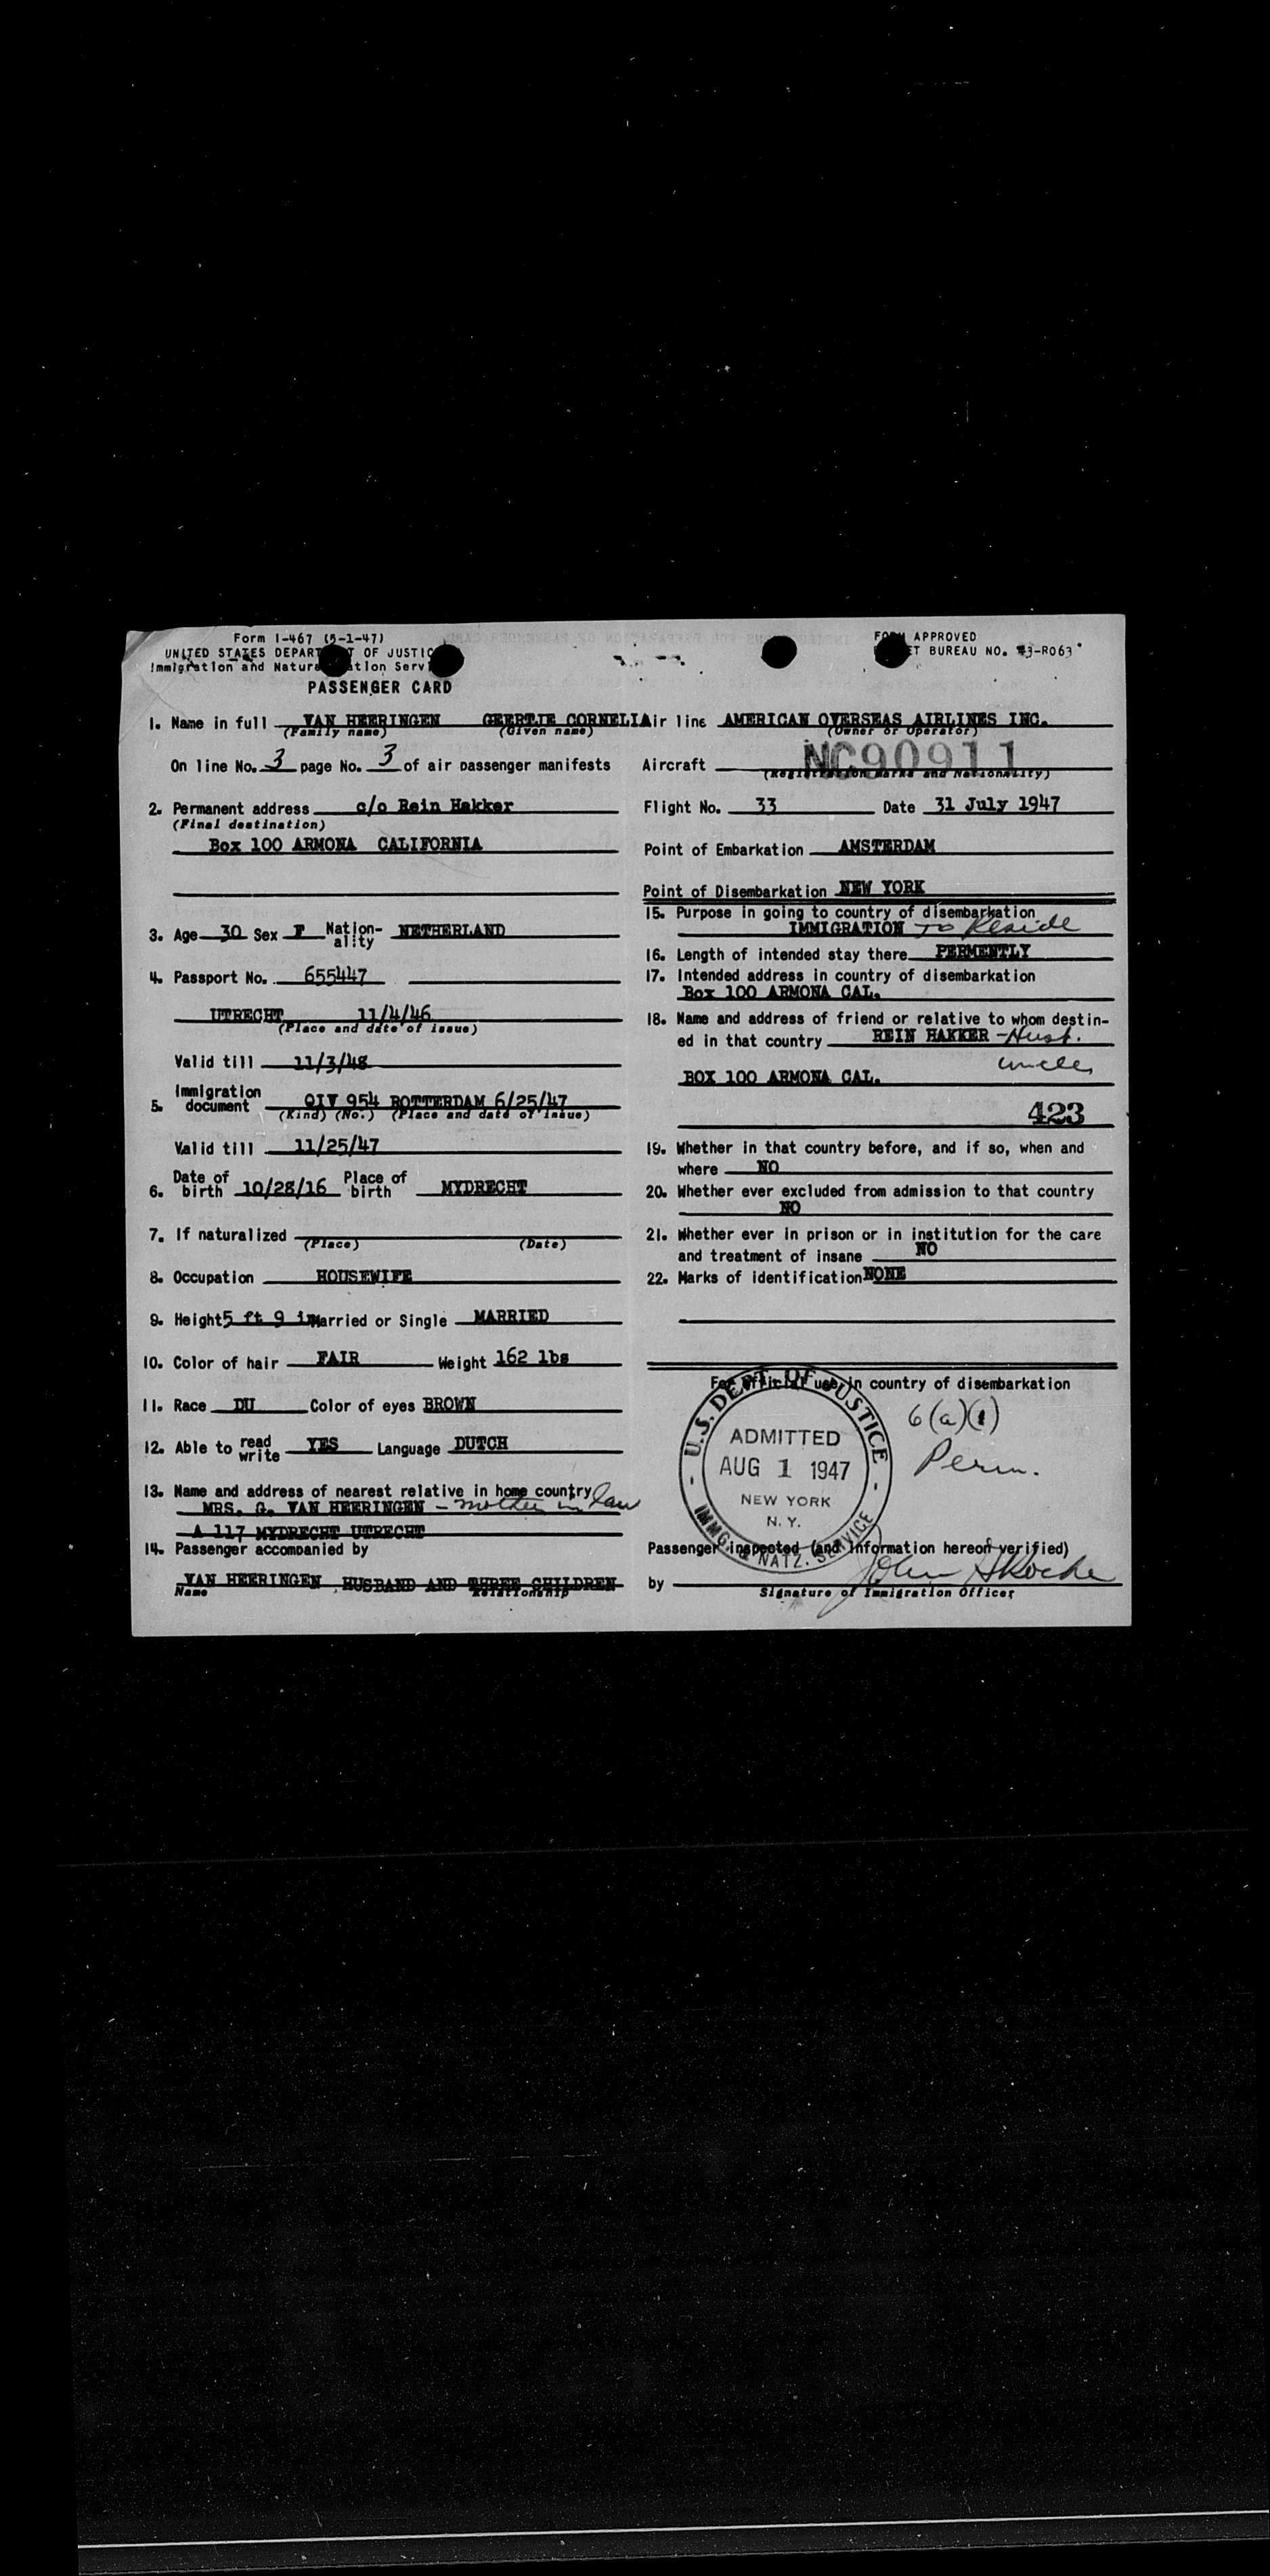 Form I-467 (5-1-47)
UNITED STATES DEPART T OF JUSTIC
Immigration and Natura ation Serv
PASSENGER CARD
FORM APPROVED
ET BUREAU NO. 43-R063
1. Name in full VAN HEERINGEN GEERTJE CORNELIA
(Family name) (Given name)
On line No. 3 page No. 3 of air passenger manifests
2. Permanent address c/o Rein Hakker
(Final destination)
Box 100 ARMONA CALIFORNIA
3. Age 30 Sex F Nation-ality NETHERLAND
4. Passport No. 655447
UTRECHT 11/4/46
(Place and date of issue)
Valid till 11/3/48
5. Immigration document QIV 954 ROTTERDAM 6/25/47
(Kind) (No.) (Place and date of issue)
Valid till 11/25/47
6. Date of birth 10/28/16 Place of birth MYDRECHT
7. If naturalized
(Place) (Date)
8. Occupation HOUSEWIFE
9. Height 5 ft 9 in Married or Single MARRIED
10. Color of hair FAIR Weight 162 lbs
11. Race DU Color of eyes BROWN
12. Able to read write YES Language DUTCH
13. Name and address of nearest relative in home country
MRS. G. VAN HEERINGEN - mother in law
A 117 MYDRECHT UTRECHT
14. Passenger accompanied by
VAN HEERINGEN , HUSBAND AND THREE CHILDREN
Name Relationship
Air line AMERICAN OVERSEAS AIRLINES INC.
(Owner or Operator)
Aircraft NC90911
(Registration marks and Nationality)
Flight No. 33 Date 31 July 1947
Point of Embarkation AMSTERDAM
Point of Disembarkation NEW YORK
15. Purpose in going to country of disembarkation
IMMIGRATION To Reside
16. Length of intended stay there PERMENTLY
17. Intended address in country of disembarkation
Box 100 ARMONA CAL.
18. Name and address of friend or relative to whom destin-
ed in that country REIN HAKKER - Husb.
uncle
BOX 100 ARMONA CAL.
423
19. Whether in that country before, and if so, when and
where NO
20. Whether ever excluded from admission to that country
NO
21. Whether ever in prison or in institution for the care
and treatment of insane NO
22. Marks of identification NONE
For official use in country of disembarkation
U.S. DEPT. OF JUSTICE
ADMITTED
AUG 1 1947
NEW YORK
N. Y.
IMMG. & NATZ. SERVICE
6(a)(1)
Perm.
Passenger inspected (and information hereon verified)
by John
Signature of Immigration Officer